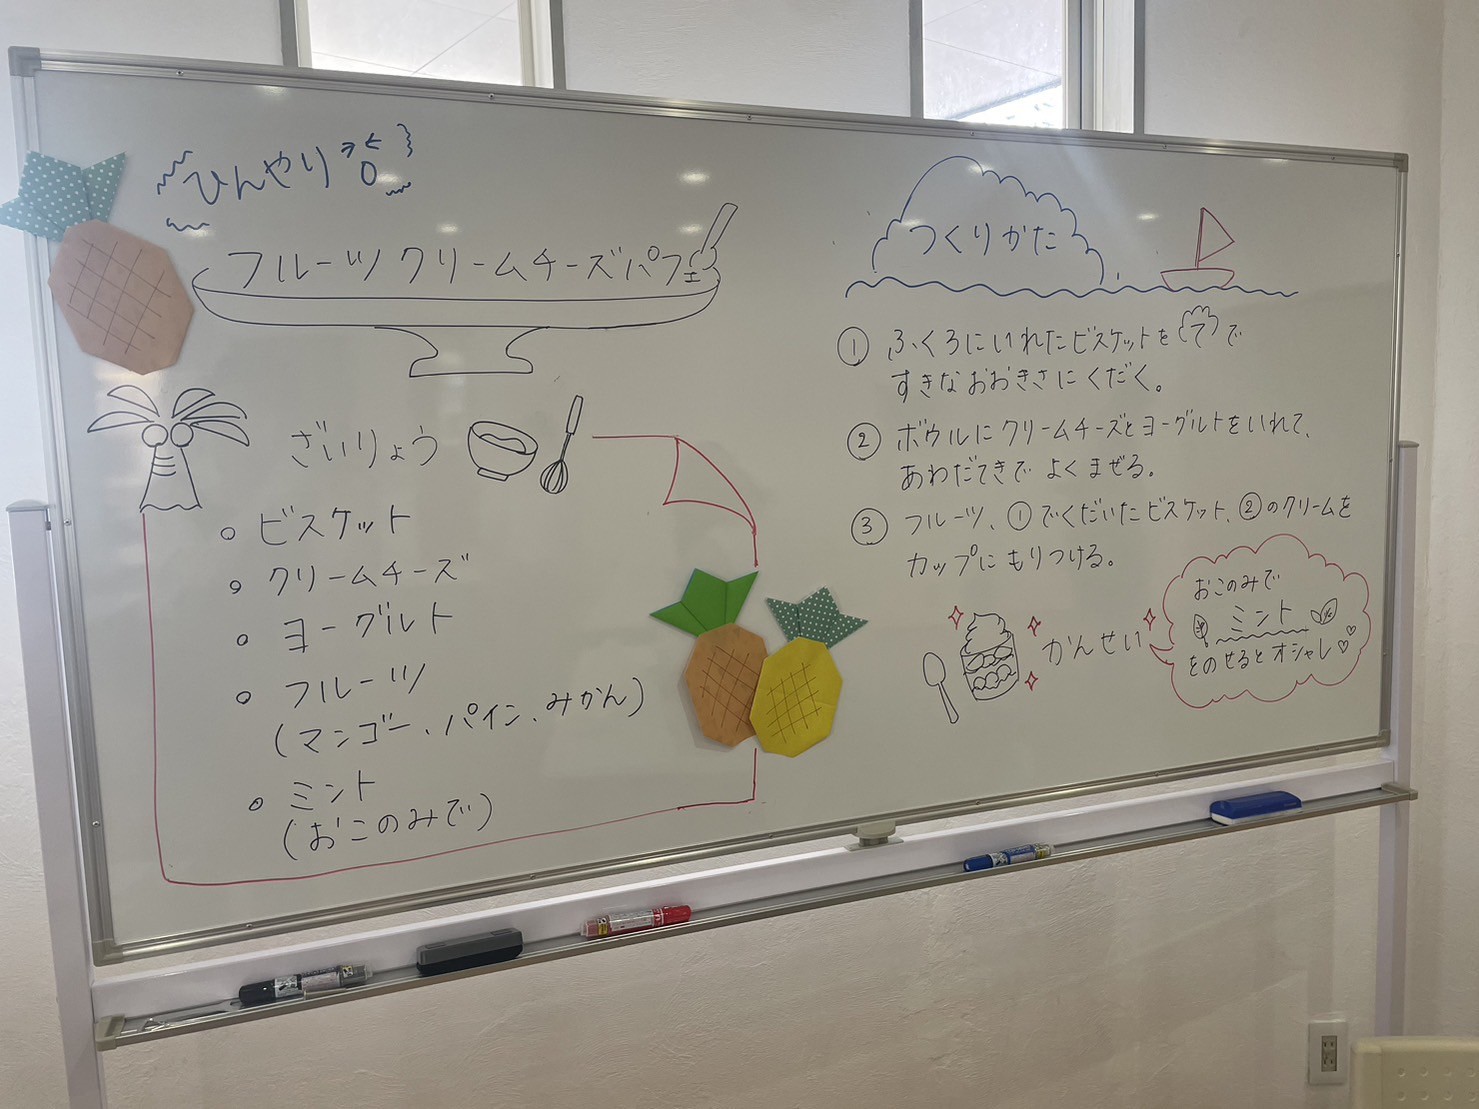 ひんやり
フルーツクリームチーズパフェ
ざいりょう
○ ビスケット
○ クリームチーズ
○ ヨーグルト
○ フルーツ
(マンゴー、パイン、みかん)
○ ミント
(おこのみで)
つくりかた
① ふくろにいれたビスケットを(て)で
すきなおおきさにくだく。
② ボウルにクリームチーズとヨーグルトをいれて、
あわだてきで よくまぜる。
③ フルーツ、①でくだいたビスケット、②のクリームを
カップにもりつける。
かんせい
おこのみで
ミント
をのせるとオシャレ♡♡